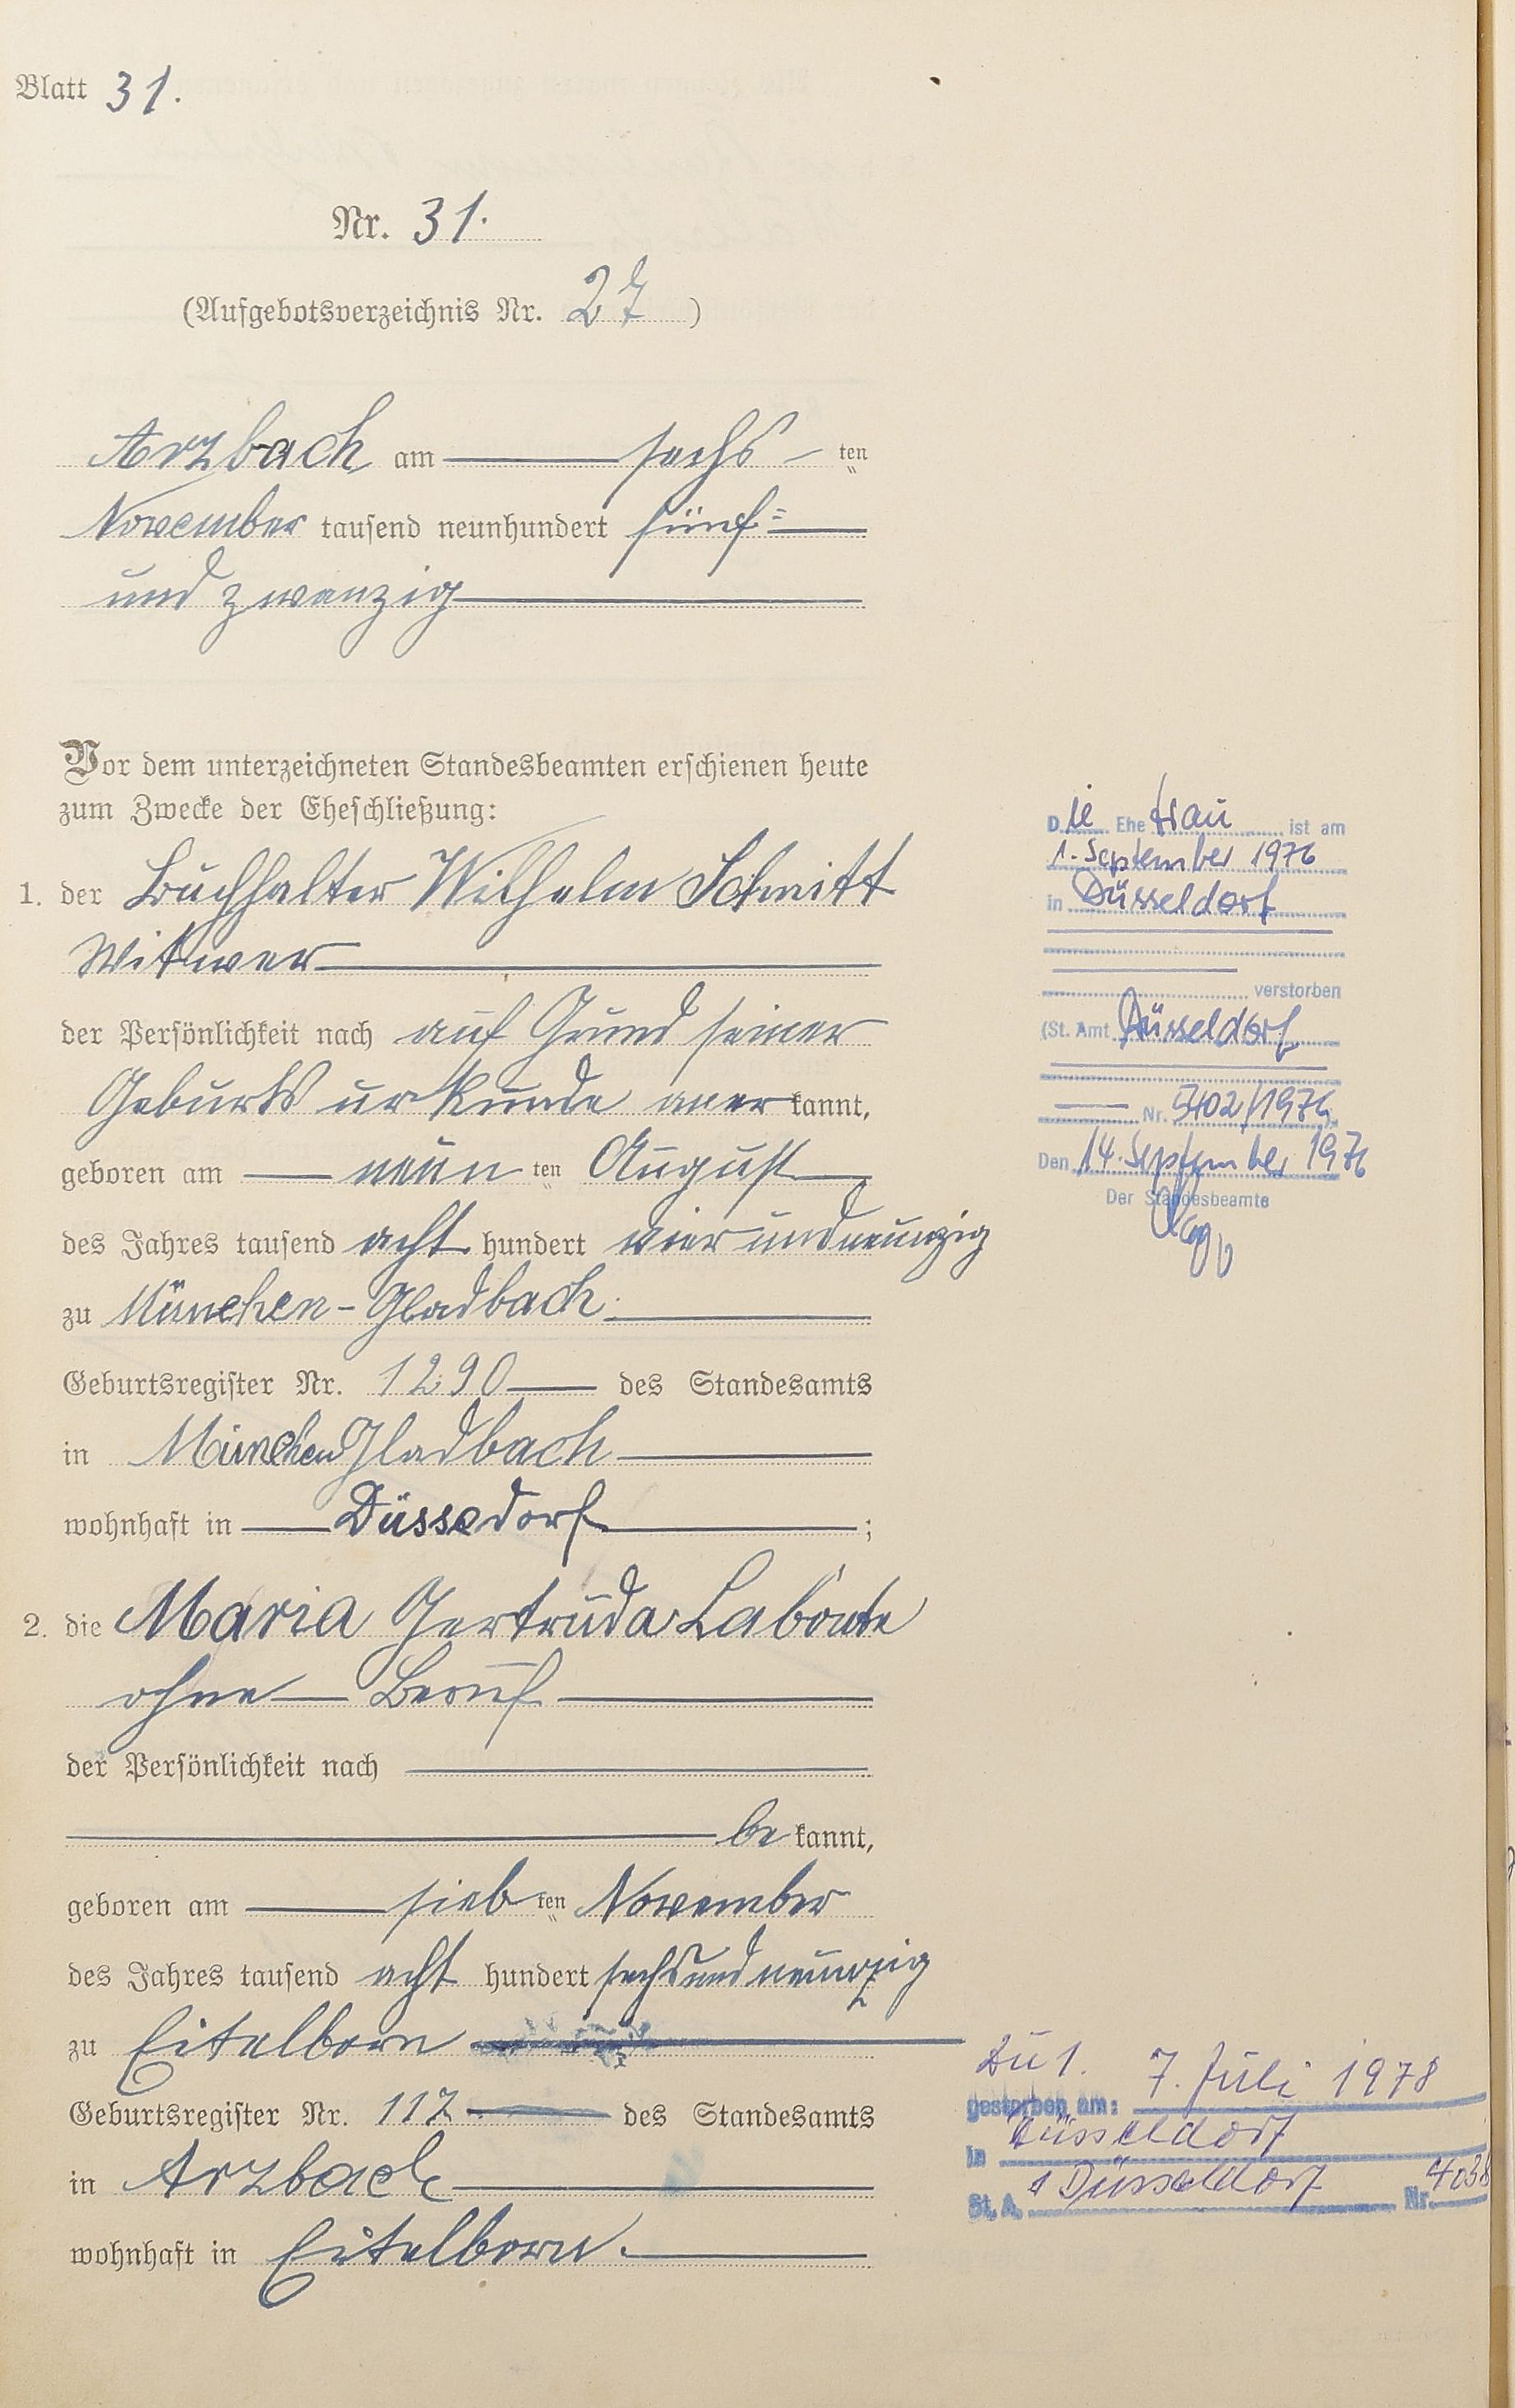 Blatt 31.
Nr. 31.
(Aufgebotsverzeichnis Nr. 27 )
Arzbach am sechs ten
November tausend neunhundert fünf=
und zwanzig
Vor dem unterzeichneten Standesbeamten erschienen heute
zum Zwecke der Eheschließung:
1. der Buchhalter Wilhelm Schmitt
Witwer
der Persönlichkeit nach auf Grund seiner
Geburtsurkunde anerkannt,
geboren am neun ten August
des Jahres tausend acht hundert vierundneunzig
zu München-Gladbach.
Geburtsregister Nr. 1290 des Standesamts
in München Gladbach
wohnhaft in Düssedorf ;
2. die Maria Gertruda Labonte
ohne Beruf
der Persönlichkeit nach
be kannt,
geboren am sieb ten November
des Jahres tausend acht hundert sechsundneunzig
zu Eitelborn
Geburtsregister Nr. 117 des Standesamts
in Arzbach
wohnhaft in Eitelborn.
Die Ehefrau ist am
1. September 1976
in Düsseldorf
verstorben
(St. Amt Düsseldorf
Nr. 5402/1976)
Den 14. September 1976
Der Standesbeamte
Zu 1.
gestorben am: 7. Juli 1978
in Düsseldorf
St. A. Düsseldorf Nr. 4038